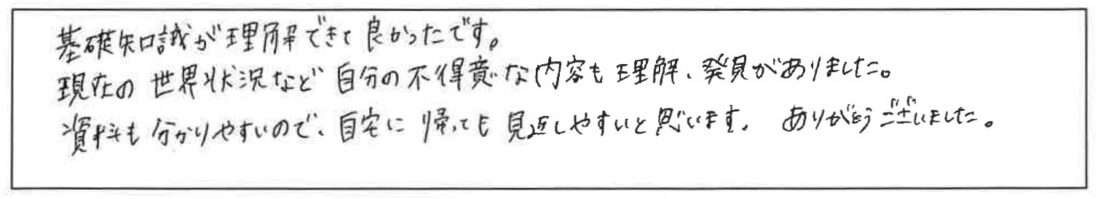 基礎知識が理解できて良かったです。
現在の世界状況など自分の不得意な内容も理解、発見がありました。
資料も分かりやすいので、自宅に帰っても見返しやすいと思います。ありがとうございました。